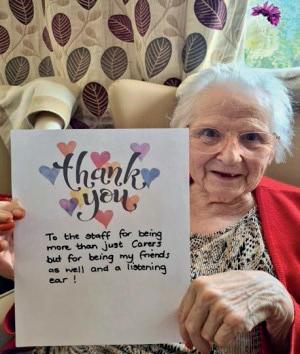 thank
you
To the staff for being
more than just Carers
but for being my friends
as well and a listening
ear !